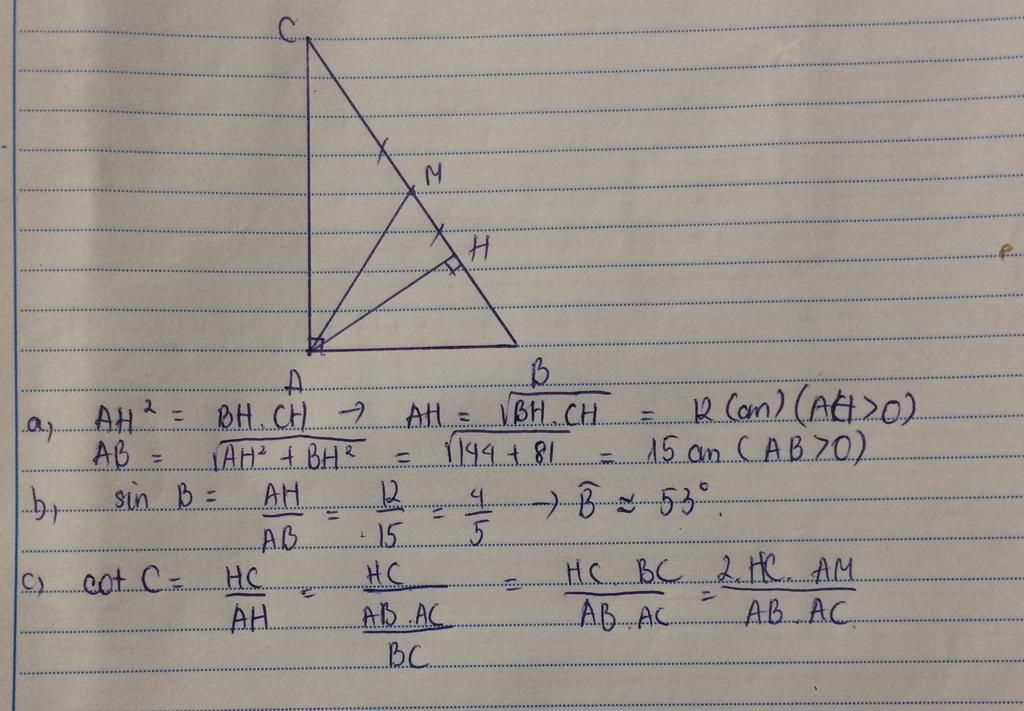 C
M
H
A
B
a, AH² = BH.CH → AH = √BH.CH = 12 (cm) (AH>0)
AB = √AH² + BH² = √144 + 81 = 15 cm (AB>0)
b, sin B = AH/AB = 12/15 = 4/5 → B̂ ≈ 53°.
c, cot C = HC/AH = HC/(AB.AC/BC) = HC.BC/AB.AC = 2.HC.AM/AB.AC